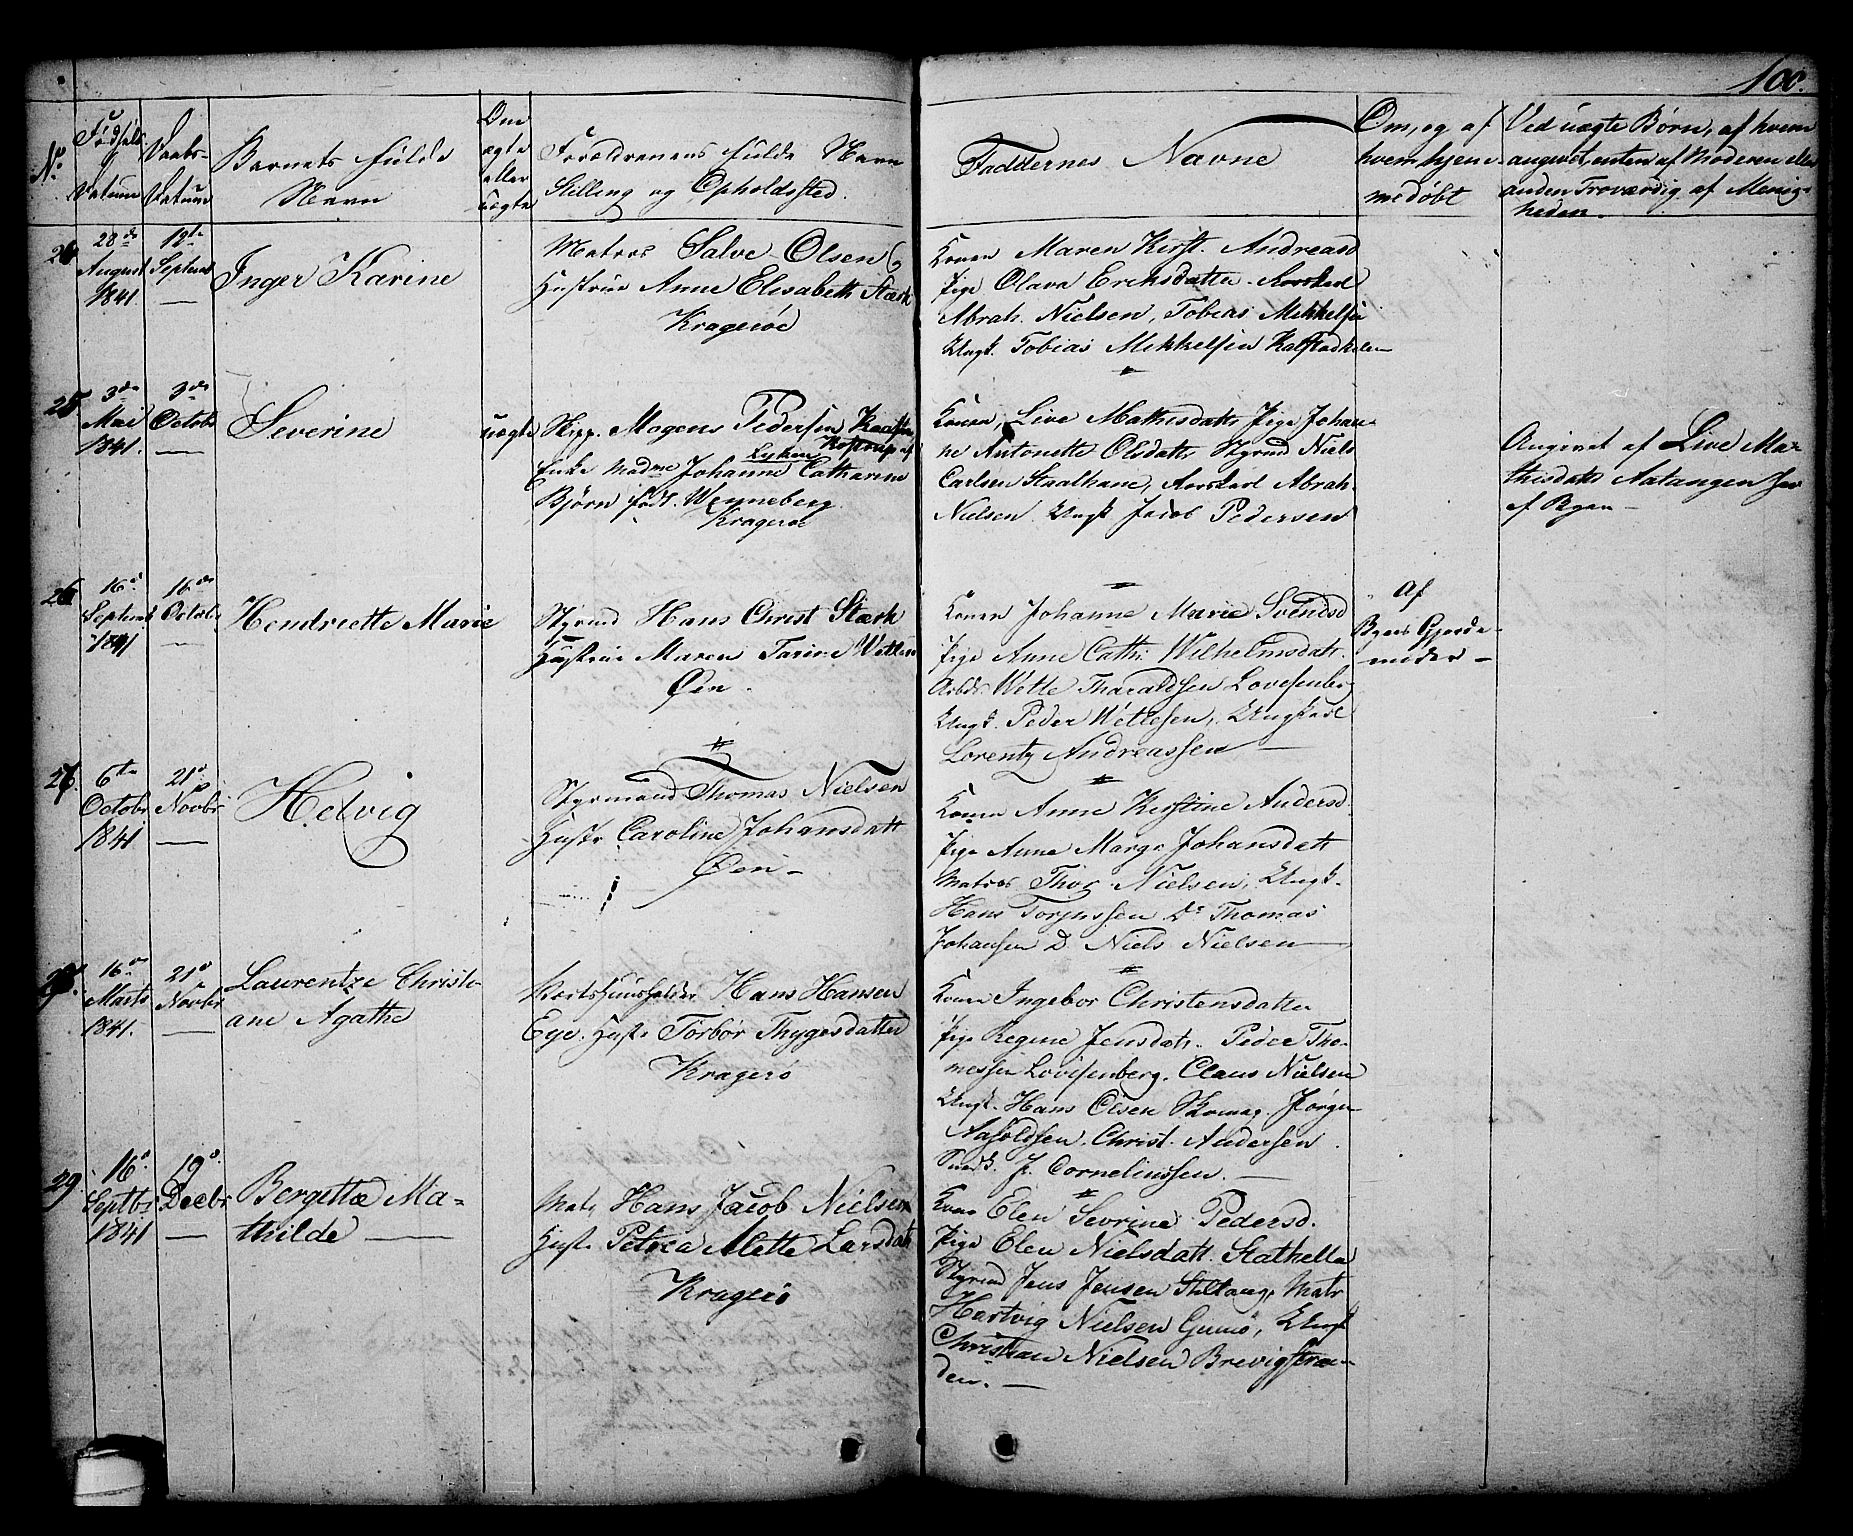 100.
No
Fødsels
Datum
Daabs-
Datum
Barnets fulde
Navn
Om
ægte
eller
uægte
Forældrenes fulde Navn
Stilling og Opholdssted.
Faddernes Navne
Om, og af
hvem hjem-
medøbt
Ved uægte Børn, af hvem
angivet, enten af Moderen eller
anden Troværdig af Menig-
heden.
24
28de
August
1841.
12te
Septemb
Inger Karine
Matros Salve Olsen
Hustrue Anne Elisabeth Stærk
Kragerøe
Konen Maren Kirst. Andreasd
Pige Olava Eriksdatter
Abrah. Nielsen, Tobias Mikkelsen
Ungk. Tobias Mikkelsen
25
3de
Mai
1841.
3de
Octobr
Severine
uægte
Skipp. Mogens Pedersen
Enke Madme Johanne Catharine
Bjørn født Wenneberg
Kragerøe
Konen Live Mathisdattr Pige Johan-
ne Antonette Olsdattr Styrmd Niels
Carlsen Staalhane, Abrah.
Nielsen. Ungk Jacob Pedersen
Angivet af Live Ma-
thisdattr Aatangen
af Byen —
26
16d
Septembr
1841
16de
Octobr
Hendreette Marie
Styrmd Hans Christ Stærk
Hustrue Maren Tarine
Øen.
Konen Johanne Marie Svendsd
Pige Anne Cathr. Wilhelmsdatr.
Arbdr Wette Tharaldsen Lovisenberg
Ungk. Peder Wettesen, Ungkarl
Lorentz Andreassen —
Af
Byens Gjorde-
moder —
27.
6te
Octobr
1841
21d
Novbr
Helvig
Styrmand Thomas Nielsen
Hustr Caroline Johansdatt
Øen —
Konen Anne Kirstine Andersd.
Pige Anne Margr Johansdatt
Matros Thor Nielsen, Ungk.
Hans Torjussen Do Thomas
Johansen D. Niels Nielsen —
28.
16de
Marts
1841.
21d
Novbr
Laurentze Christi-
ane Agathe
Vertshuusholder Hans Hansen
Eye. Hustr Torbor Thygesdatter
Kragerø
Konen Ingebor Christensdatter
Pige Regine Jensdatr. Peder Tho-
messen Lovisenberg. Claus Nielsen
Ungk. Hans Olsen Skomag. Jørgen
Aasoldsen. Christ. Andersen.
Snedk. J. Corneliussen. —
29
16d.
Septbr
1841
19d.
Decbr
Bergette Ma-
thilde —
Matr Hans Jacob Nielsen
Hustr Petrea Alette Larsdatr
Kragerø
Kone Elen Sevrine Pedersd.
Pige Elen Nielsdatt. Stathelle
Styrmd Jens Jensen Matr
Hartvig Nielsen Gumø, Ungk
Christian Nielsen Brevigstran-
den. —